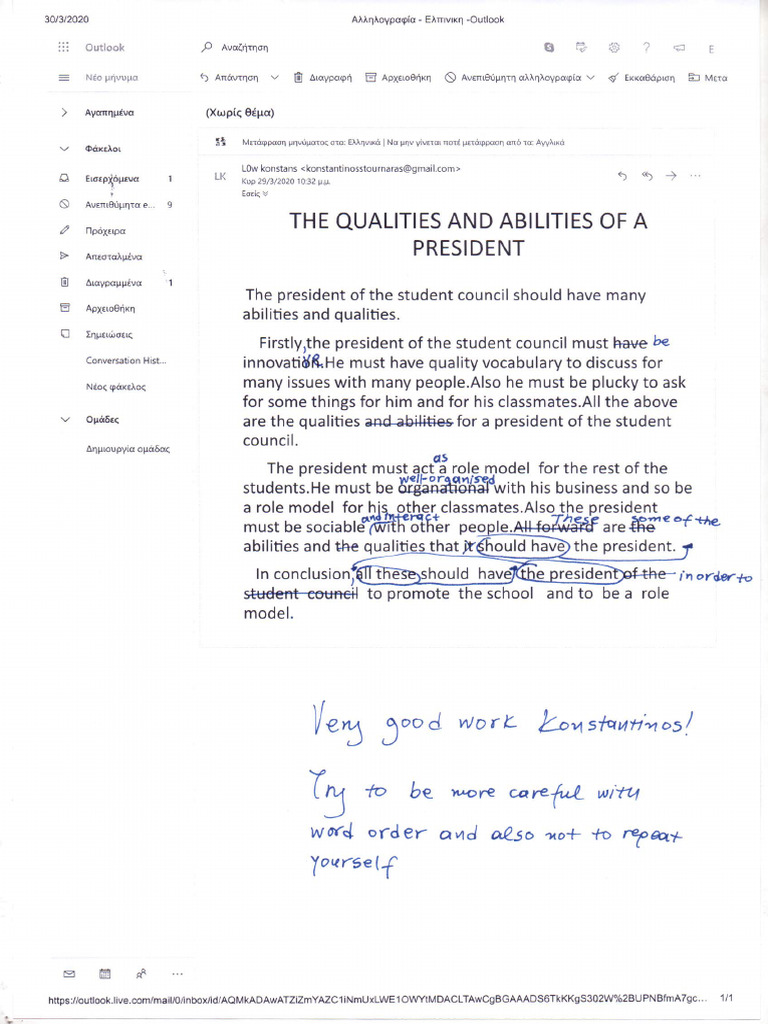 30/3/2020 Αλληλογραφία - Ελπινικη -Outlook
Outlook Αναζήτηση ? E
Νέο μήνυμα Απάντηση Διαγραφή Αρχειοθήκη Ανεπιθύμητη αλληλογραφία Εκκαθάριση Μετα
Αγαπημένα (Χωρίς θέμα)
Μετάφραση μηνύματος στα: Ελληνικά | Να μην γίνεται ποτέ μετάφραση από τα: Αγγλικά
Φάκελοι
LK L0w konstans <konstantinosstournaras@gmail.com>
Εισερχόμενα 1 Κυρ 29/3/2020 10:32 μ.μ.
Εσείς
Ανεπιθύμητα e... 9
Πρόχειρα
Απεσταλμένα
Διαγραμμένα 1
Αρχειοθήκη
Σημειώσεις
Conversation Hist...
Νέος φάκελος
Ομάδες
Δημιουργία ομάδας
THE QUALITIES AND ABILITIES OF A
PRESIDENT
The president of the student council should have many
abilities and qualities.
Firstly,the president of the student council must have be
innovation.He must have quality vocabulary to discuss for
many issues with many people.Also he must be plucky to ask
for some things for him and for his classmates.All the above
are the qualities and abilities for a president of the student
council.
as
The president must act a role model for the rest of the
well-organised
students.He must be organational with his business and so be
a role model for his other classmates.Also the president
and interact These some of the
must be sociable with other people.All forward are the
abilities and the qualities that it should have the president.
In conclusion,all these should have the president of the in order to
student council to promote the school and to be a role
model.
Very good work Konstantinos!
Try to be more careful with
word order and also not to repeat
yourself
https://outlook.live.com/mail/0/inbox/id/AQMkADAwATZiZmYAZC1iNmUxLWE1OWYtMDACLTAwCgBGAAADS6TkKKgS302W%2BUPNBfmA7gc... 1/1